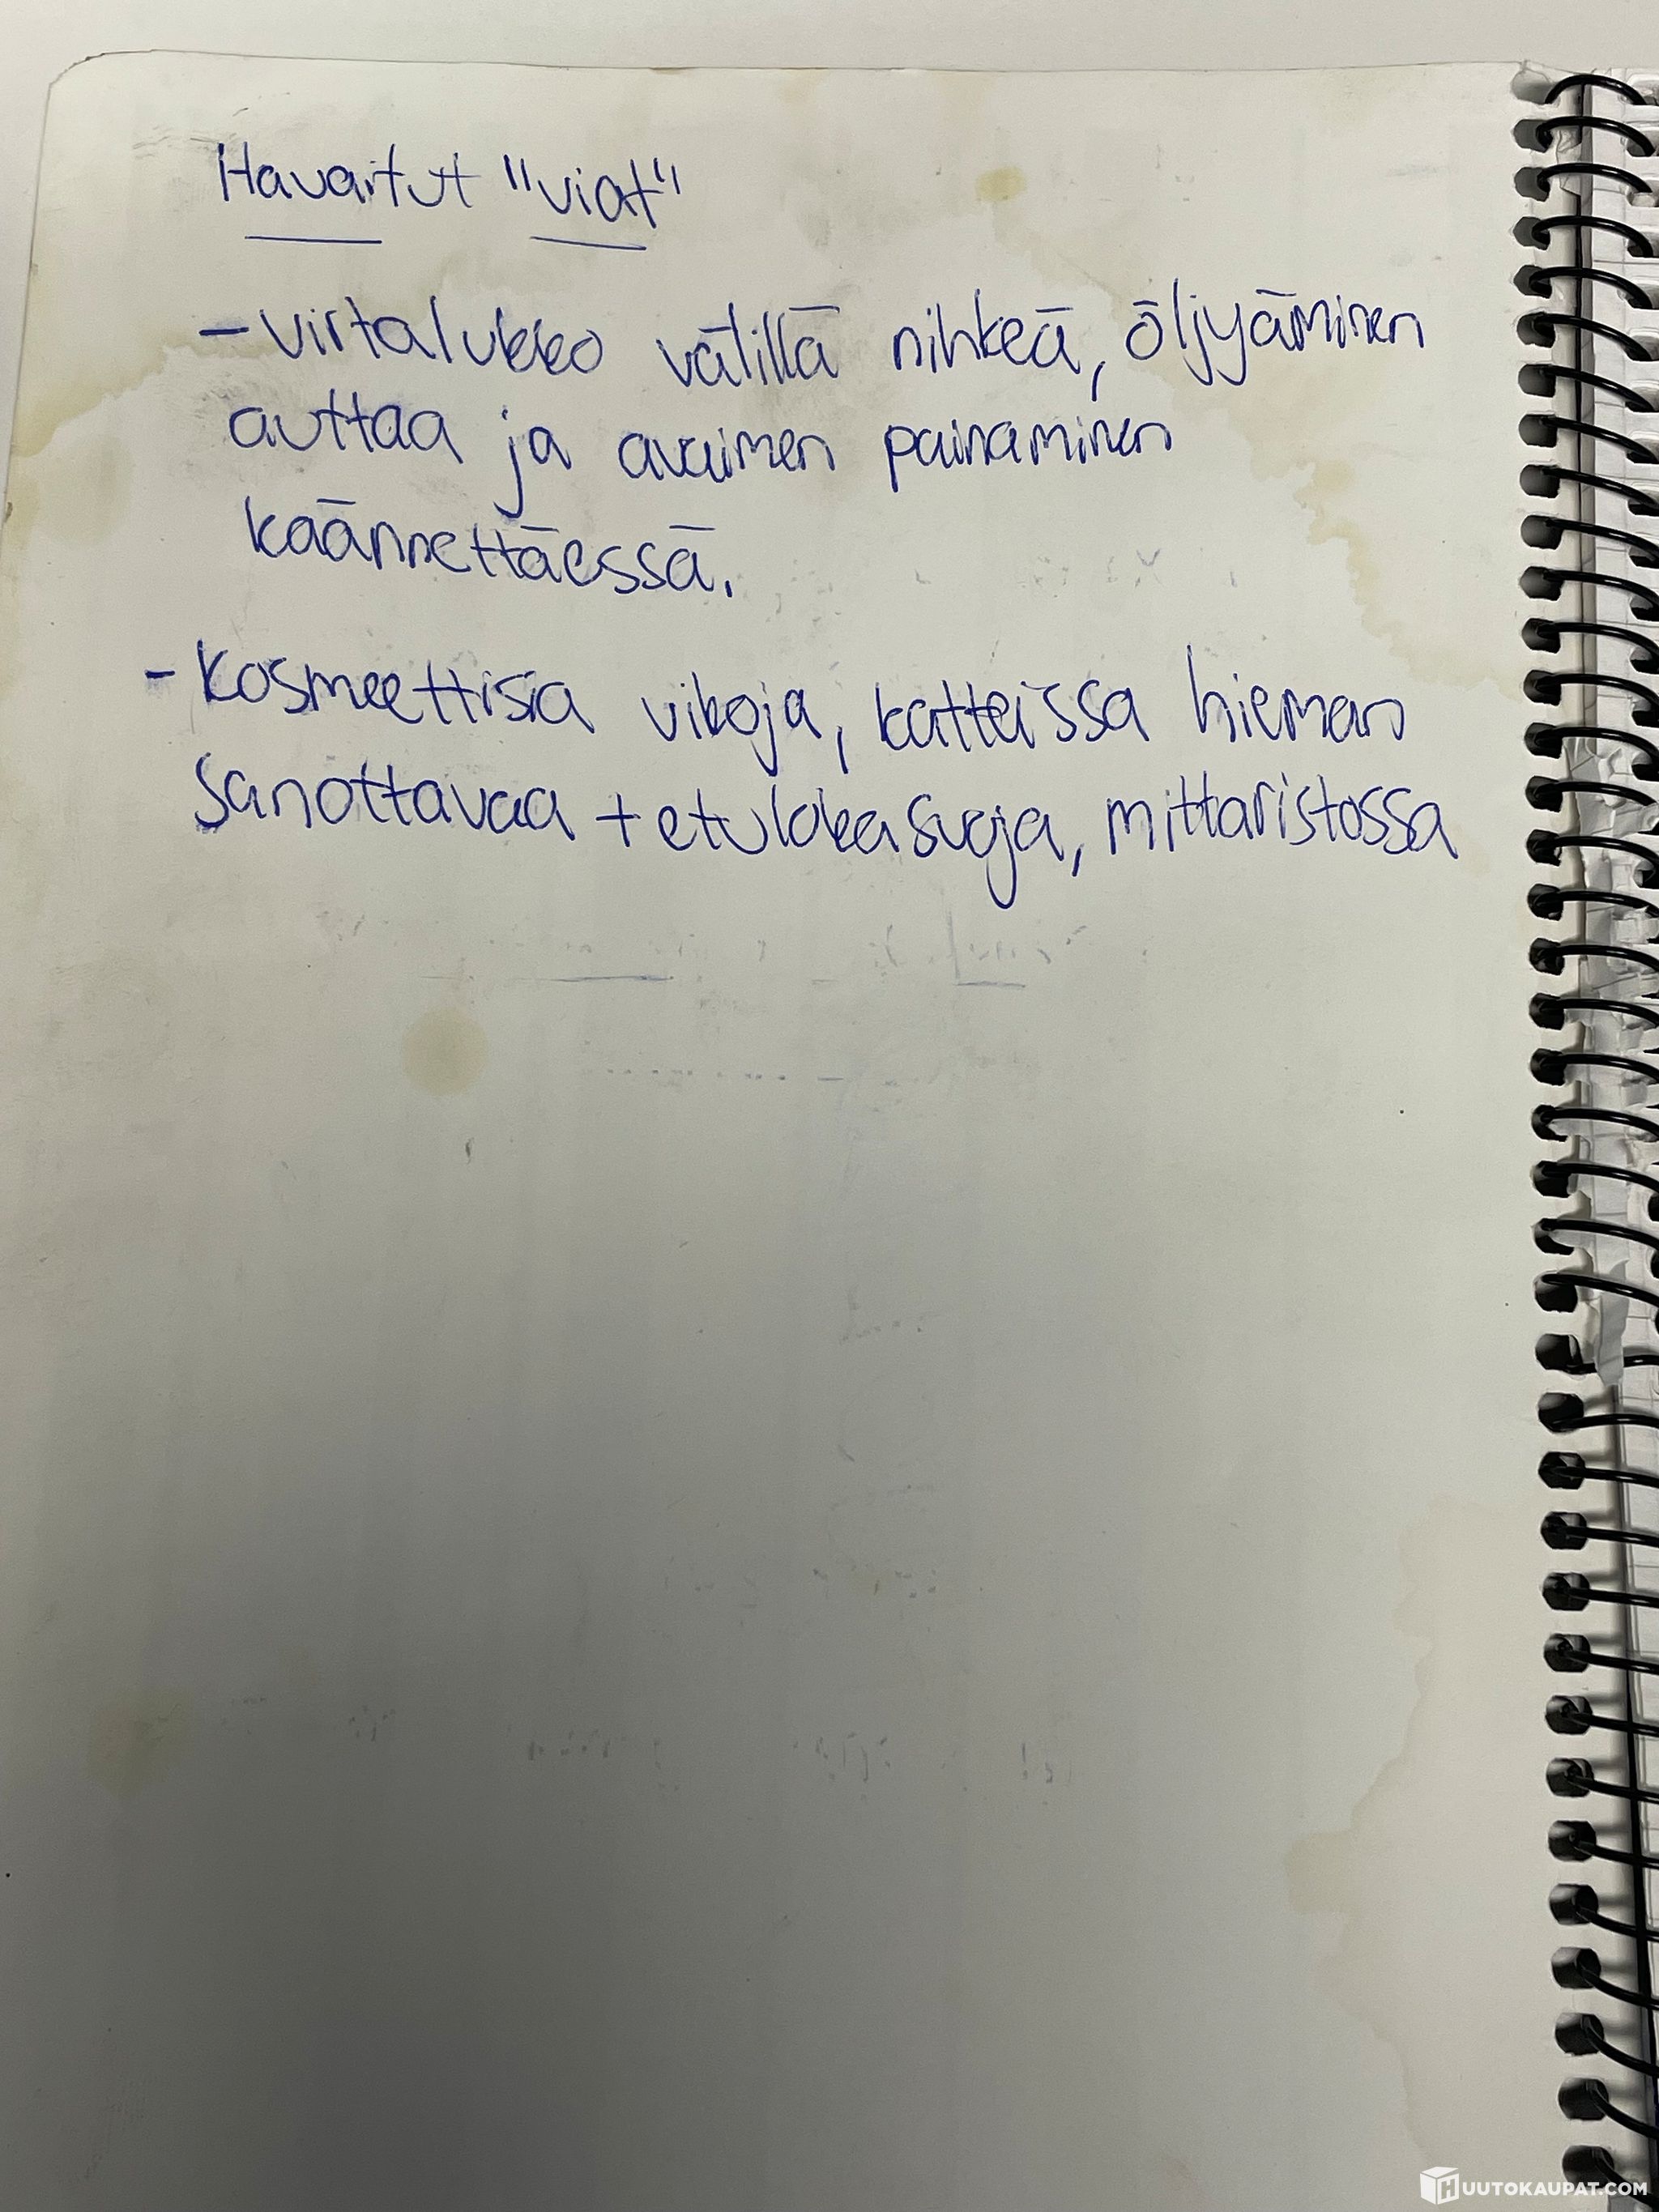 Havaitut "viat"
- virtalukko välillä nihkeä, öljyäminen
auttaa ja avaimen painaminen
käännettäessä.
- Kosmeettisia vikoja, katteissa hieman
sanottavaa + etulokasuoja, mittaristossa
HUUTOKAUPAT.COM